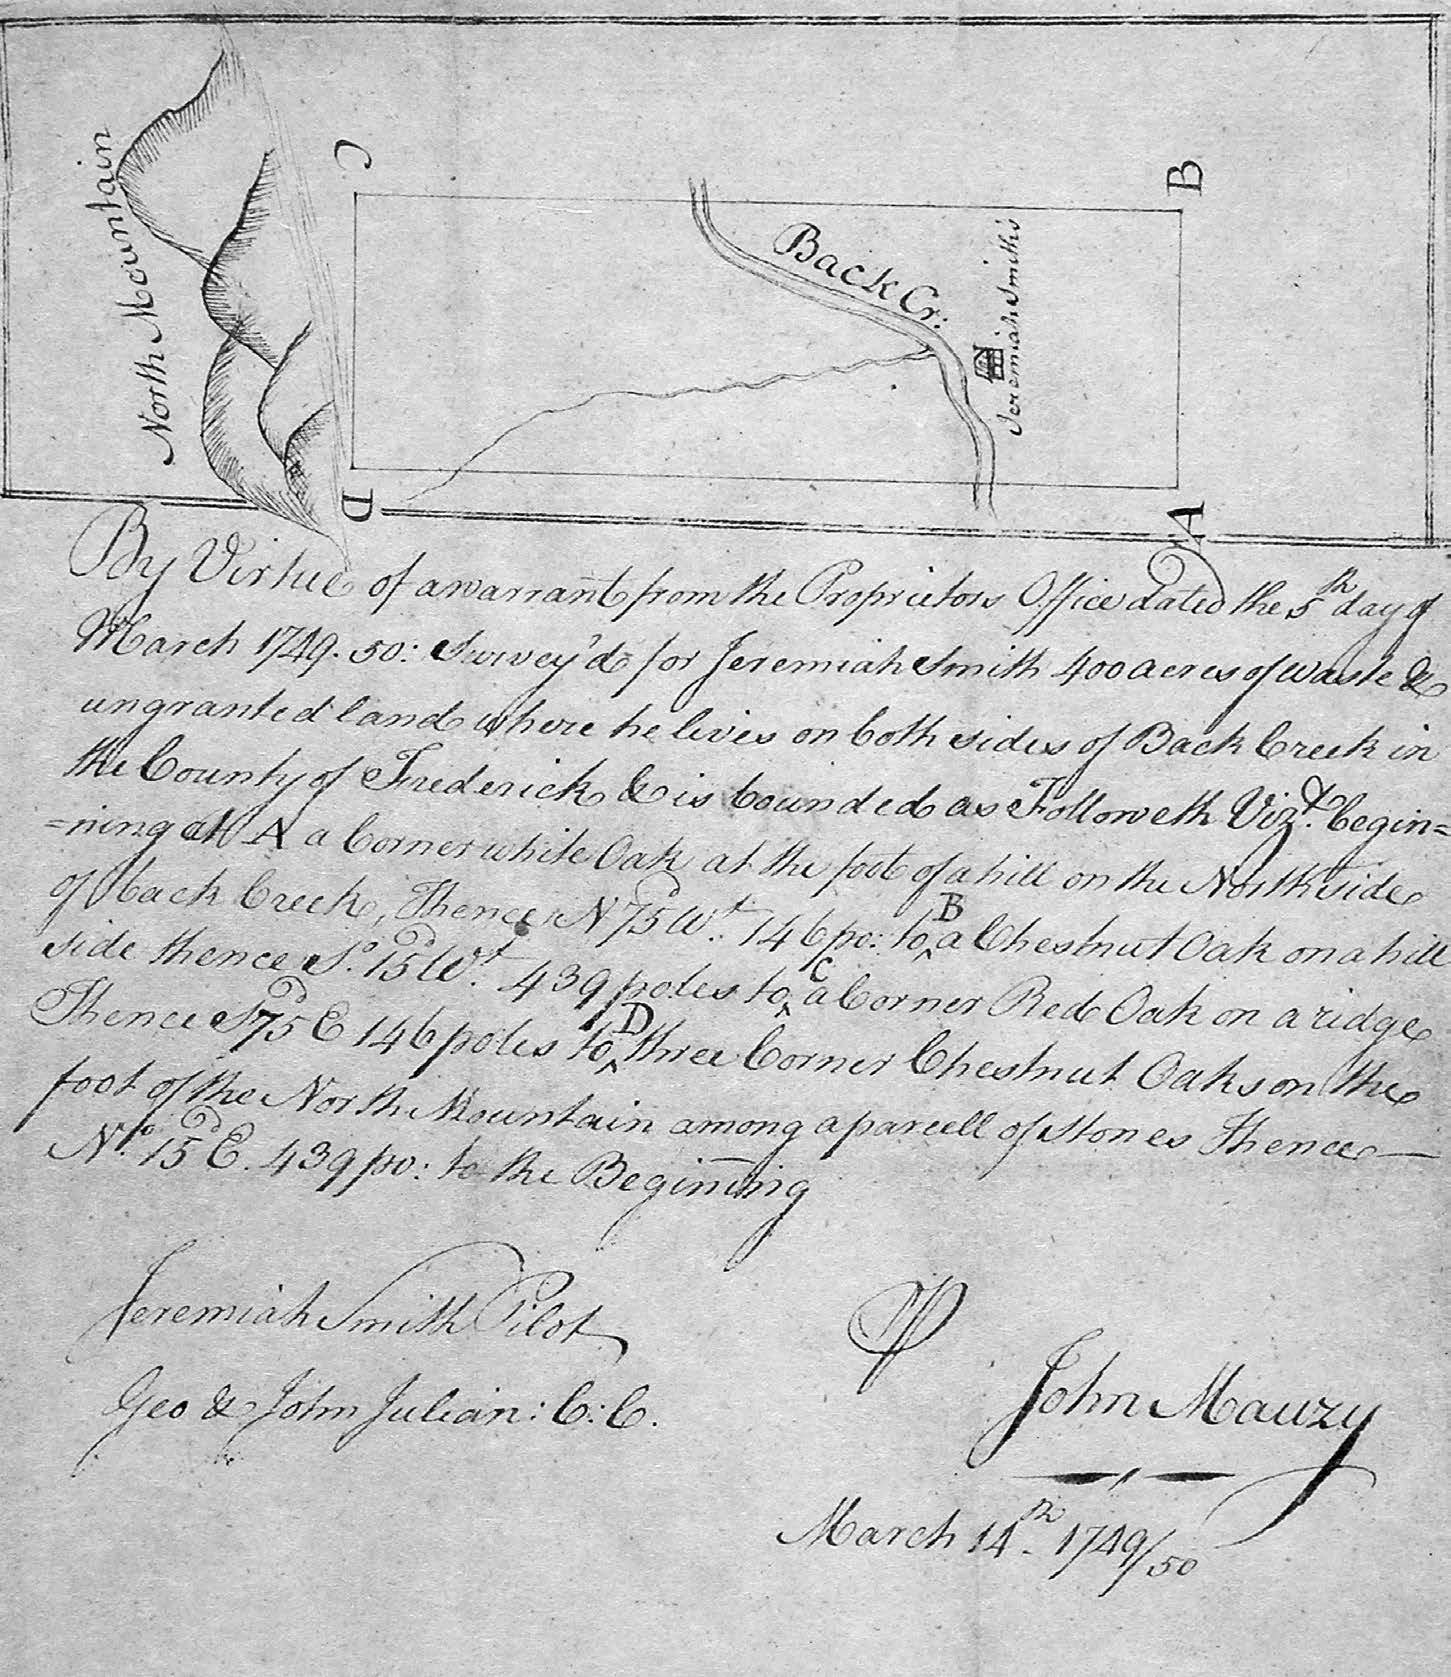 North Mountain
C
B
Back Cr:
Jeremiah Smiths
D
A
By Virtue of a warrant from the Proprietors Office dated the 5th day of
March 1749.50: Survey'd for Jeremiah Smith 400 acres of waste &
ungranted land where he lives on both sides of Back Creek in
the County of Frederick & is bounded as Followeth Vizt. begin=
=ning at A a Corner white Oak at the foot of a hill on the North side
of back Creek, Thence N 75d Wt. 146 po: to B a Chestnut Oak on a hill
side thence So. 15d Wt. 439 poles to C a Corner Red Oak on a ridge
Thence S 75d E 146 poles to D three Corner Chestnut Oaks on the
foot of the North Mountain among a parcell of stones Thence
No. 15d E. 439 po: to the Beginning
Jeremiah Smith Pilot
Geo & John Julian: C: C.
John Mauzy
March 14th 1749/50